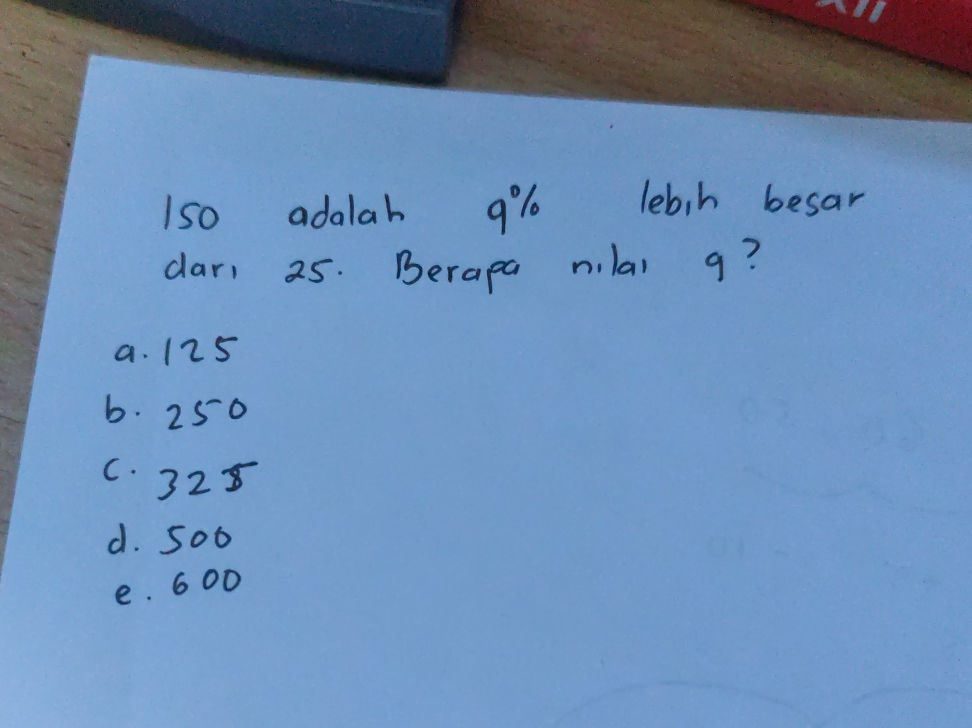 XII
150 adalah q% lebih besar
dari 25. Berapa nilai q?
a. 125
b. 250
c. 325
d. 500
e. 600